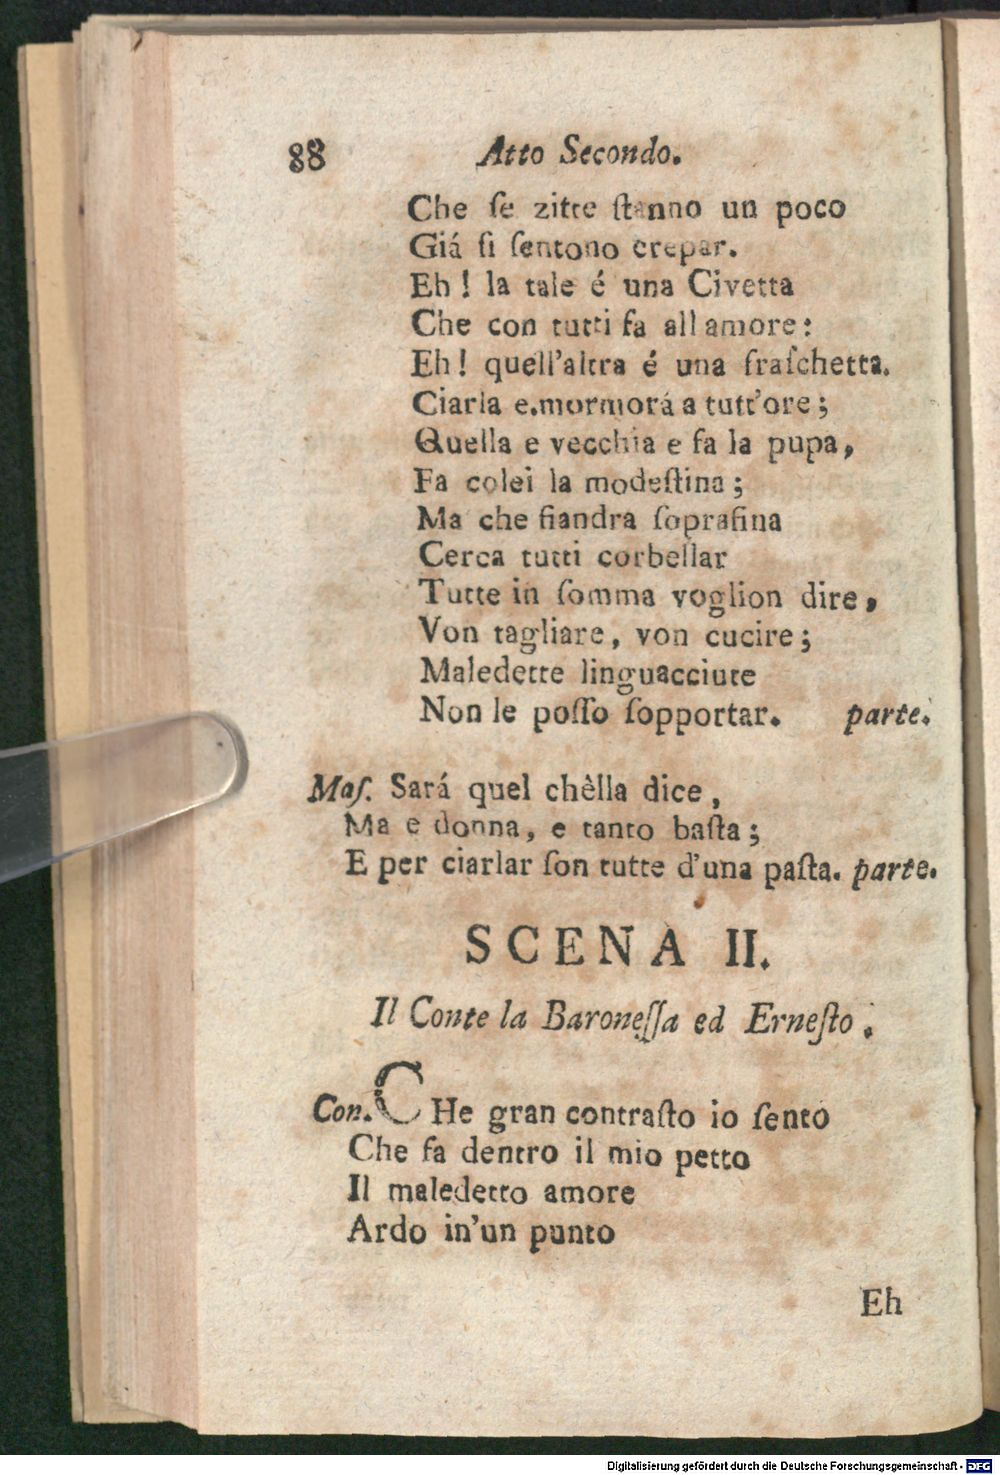 88 Atto Secondo.
Che ſe zitte ſtanno un poco
Giá ſi ſentono crepar.
Eh! la tale é una Civetta
Che con tutti fa all amore:
Eh! quell'altra é una fraſchetta.
Ciarla e.mormorá a tutt'ore;
Quella e vecchia e fa la pupa,
Fa colei la modeſtina;
Ma che fiandra ſoprafina
Cerca tutti corbellar
Tutte in ſomma voglion dire,
Von tagliare, von cucire;
Maledette linguacciute
Non le poſſo ſopportar. parte.
Maſ. Sará quel chèlla dice,
Ma e donna, e tanto baſta;
E per ciarlar ſon tutte d'una paſta. parte.
SCENA II.
Il Conte la Baroneſſa ed Erneſto.
Con. CHe gran contraſto io ſento
Che fa dentro il mio petto
Il maledetto amore
Ardo in'un punto
Eh
Digitalisierung gefördert durch die Deutsche Forschungsgemeinschaft - DFG